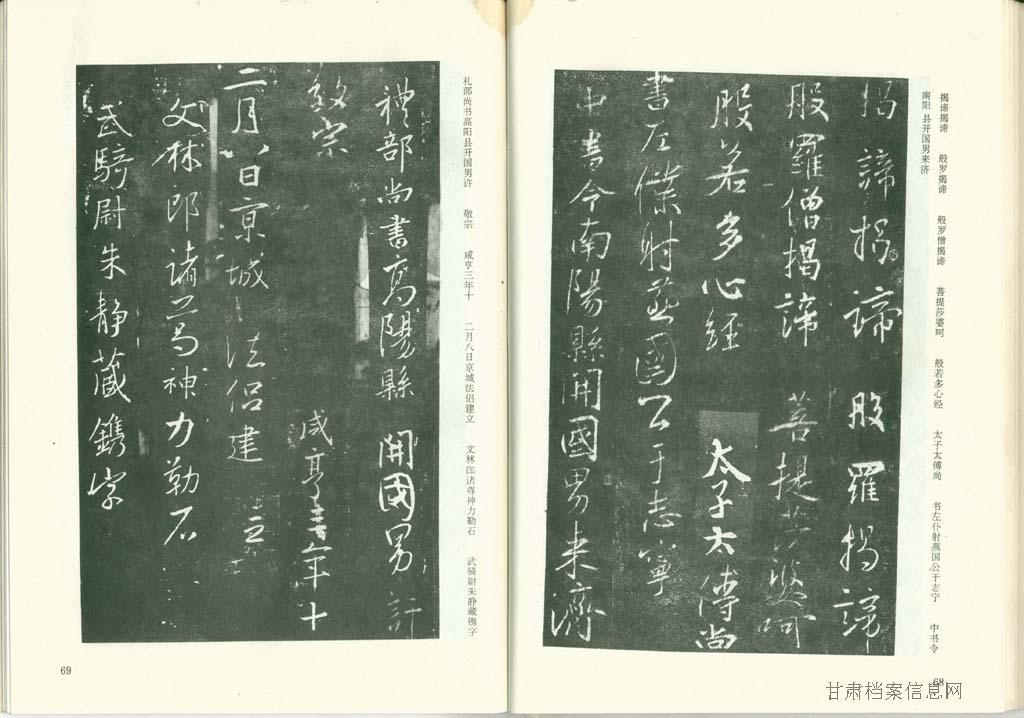 揭谛揭谛 般罗揭谛 般罗僧揭谛 菩提莎婆呵 般若多心经 太子太傅尚 书左仆射燕国公于志宁 中书令
南阳县开国男来济
揭諦揭諦 般羅揭諦
般羅僧揭諦 菩提莎婆呵
般若多心經 太子太傅尚
書左僕射燕國公于志寧
中書令南陽縣開國男来濟
68
礼部尚书高阳县开国男许 敬宗 咸亨三年十 二月八日京城法侣建立 文林郎诸尊神力勒石 武骑尉朱静藏镌字
禮部尚書高陽縣 開國男許
敬宗 咸亨三年十
二月八日京城 法侶建立
文林郎諸葛神力勒石
武騎尉朱静藏鐫字
69
甘肃档案信息网